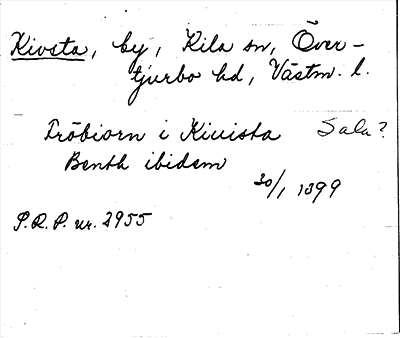 Kivsta, by, Kila sn, Över-
tjurbo hd, Västm. l.
Tröbiorn i Kiuista Sala?
Benth ibidem
30/1 1399
P.R.P. nr. 2955